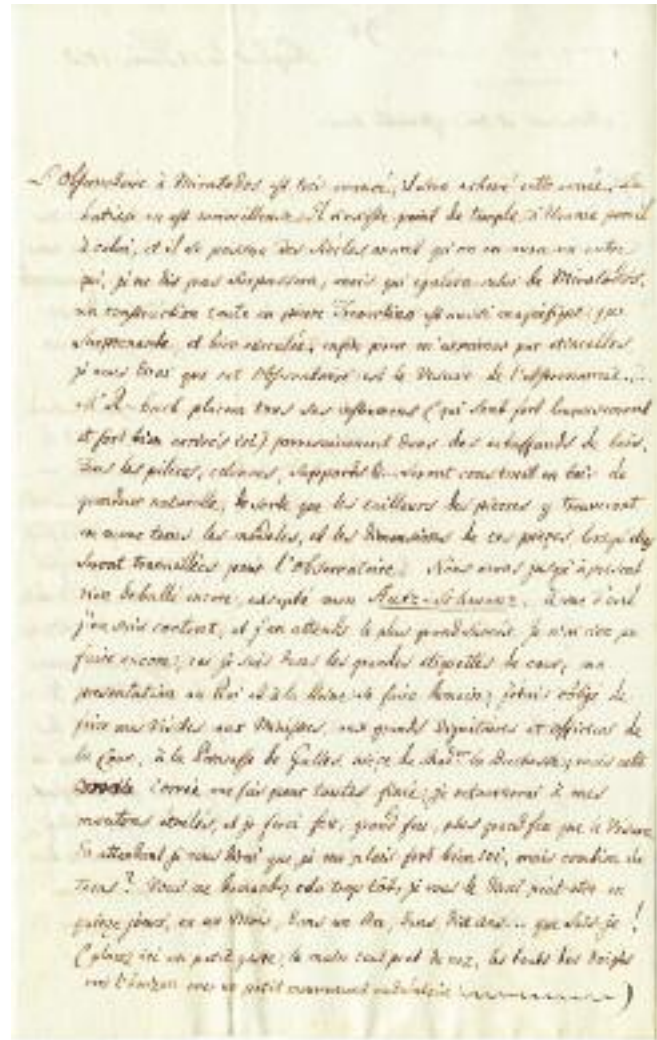 L'Observatoire à Miratodos est très avancé, il sera achevé cette année. La
batisse en est merveilleuse. Il n'existe point de temple d'Uranie pareil
à celui, et il se passera des siècles avant qu'on en aura un autre
qui, je ne dis pas surpassera, mais qui égalera celui de Miratodos.
sa construction toute en pierre est aussi magnifique que
surprenante, et bien exécutée, enfin pour m'exprimer par étincelles
je vous dirai que cet Observatoire est le Vesuve de l'astronomie....
placera tous ses instrumens (qui sont fort heureusement
et fort bien arrivés ici) provisoirement dans des echaffauds de bois.
Tous les piliers, colonnes, supports &c. seront construit en bois de
grandeur naturelle, de sorte que les tailleurs des pierres y trouveront
en meme tems les modeles, et les dimensions de ces pieces lorsqu'elles
seront travaillées pour l'Observatoire. Nous avons jusqu'à present
rien deballé encore, excepté mon à vue d'oeil
j'en suis content, et j'en attends le plus grand succès. Je n'ai rien pu
faire encore, car je suis dans les grandes etiquettes de cour, ma
presentation au Roi et à la Reine se faire demain; j'etais obligé de
faire mes visites aux Ministres, aux grands dignitaires et officiers de
la Cour, à la Princesse de Galles, niece de Mad.me la Duchesse; mais cette
corvée une fois pour toutes finie, je retournerai à mes
moutons étoilés, et je ferai feu, grand feu, plus grand feu que le Vesuve.
En attendant je vous dirai que je me plais fort bien ici, mais combien de
tems? Vous me demandez cela trop tôt, je vous le dirai peut-etre en
quinze jours, en un Mois, dans un An, dans dix ans... que sais-je!
(placez ici un petit geste; la main tout près de nez, les bouts des doigts
vers l'horizon avec un petit mouvement)